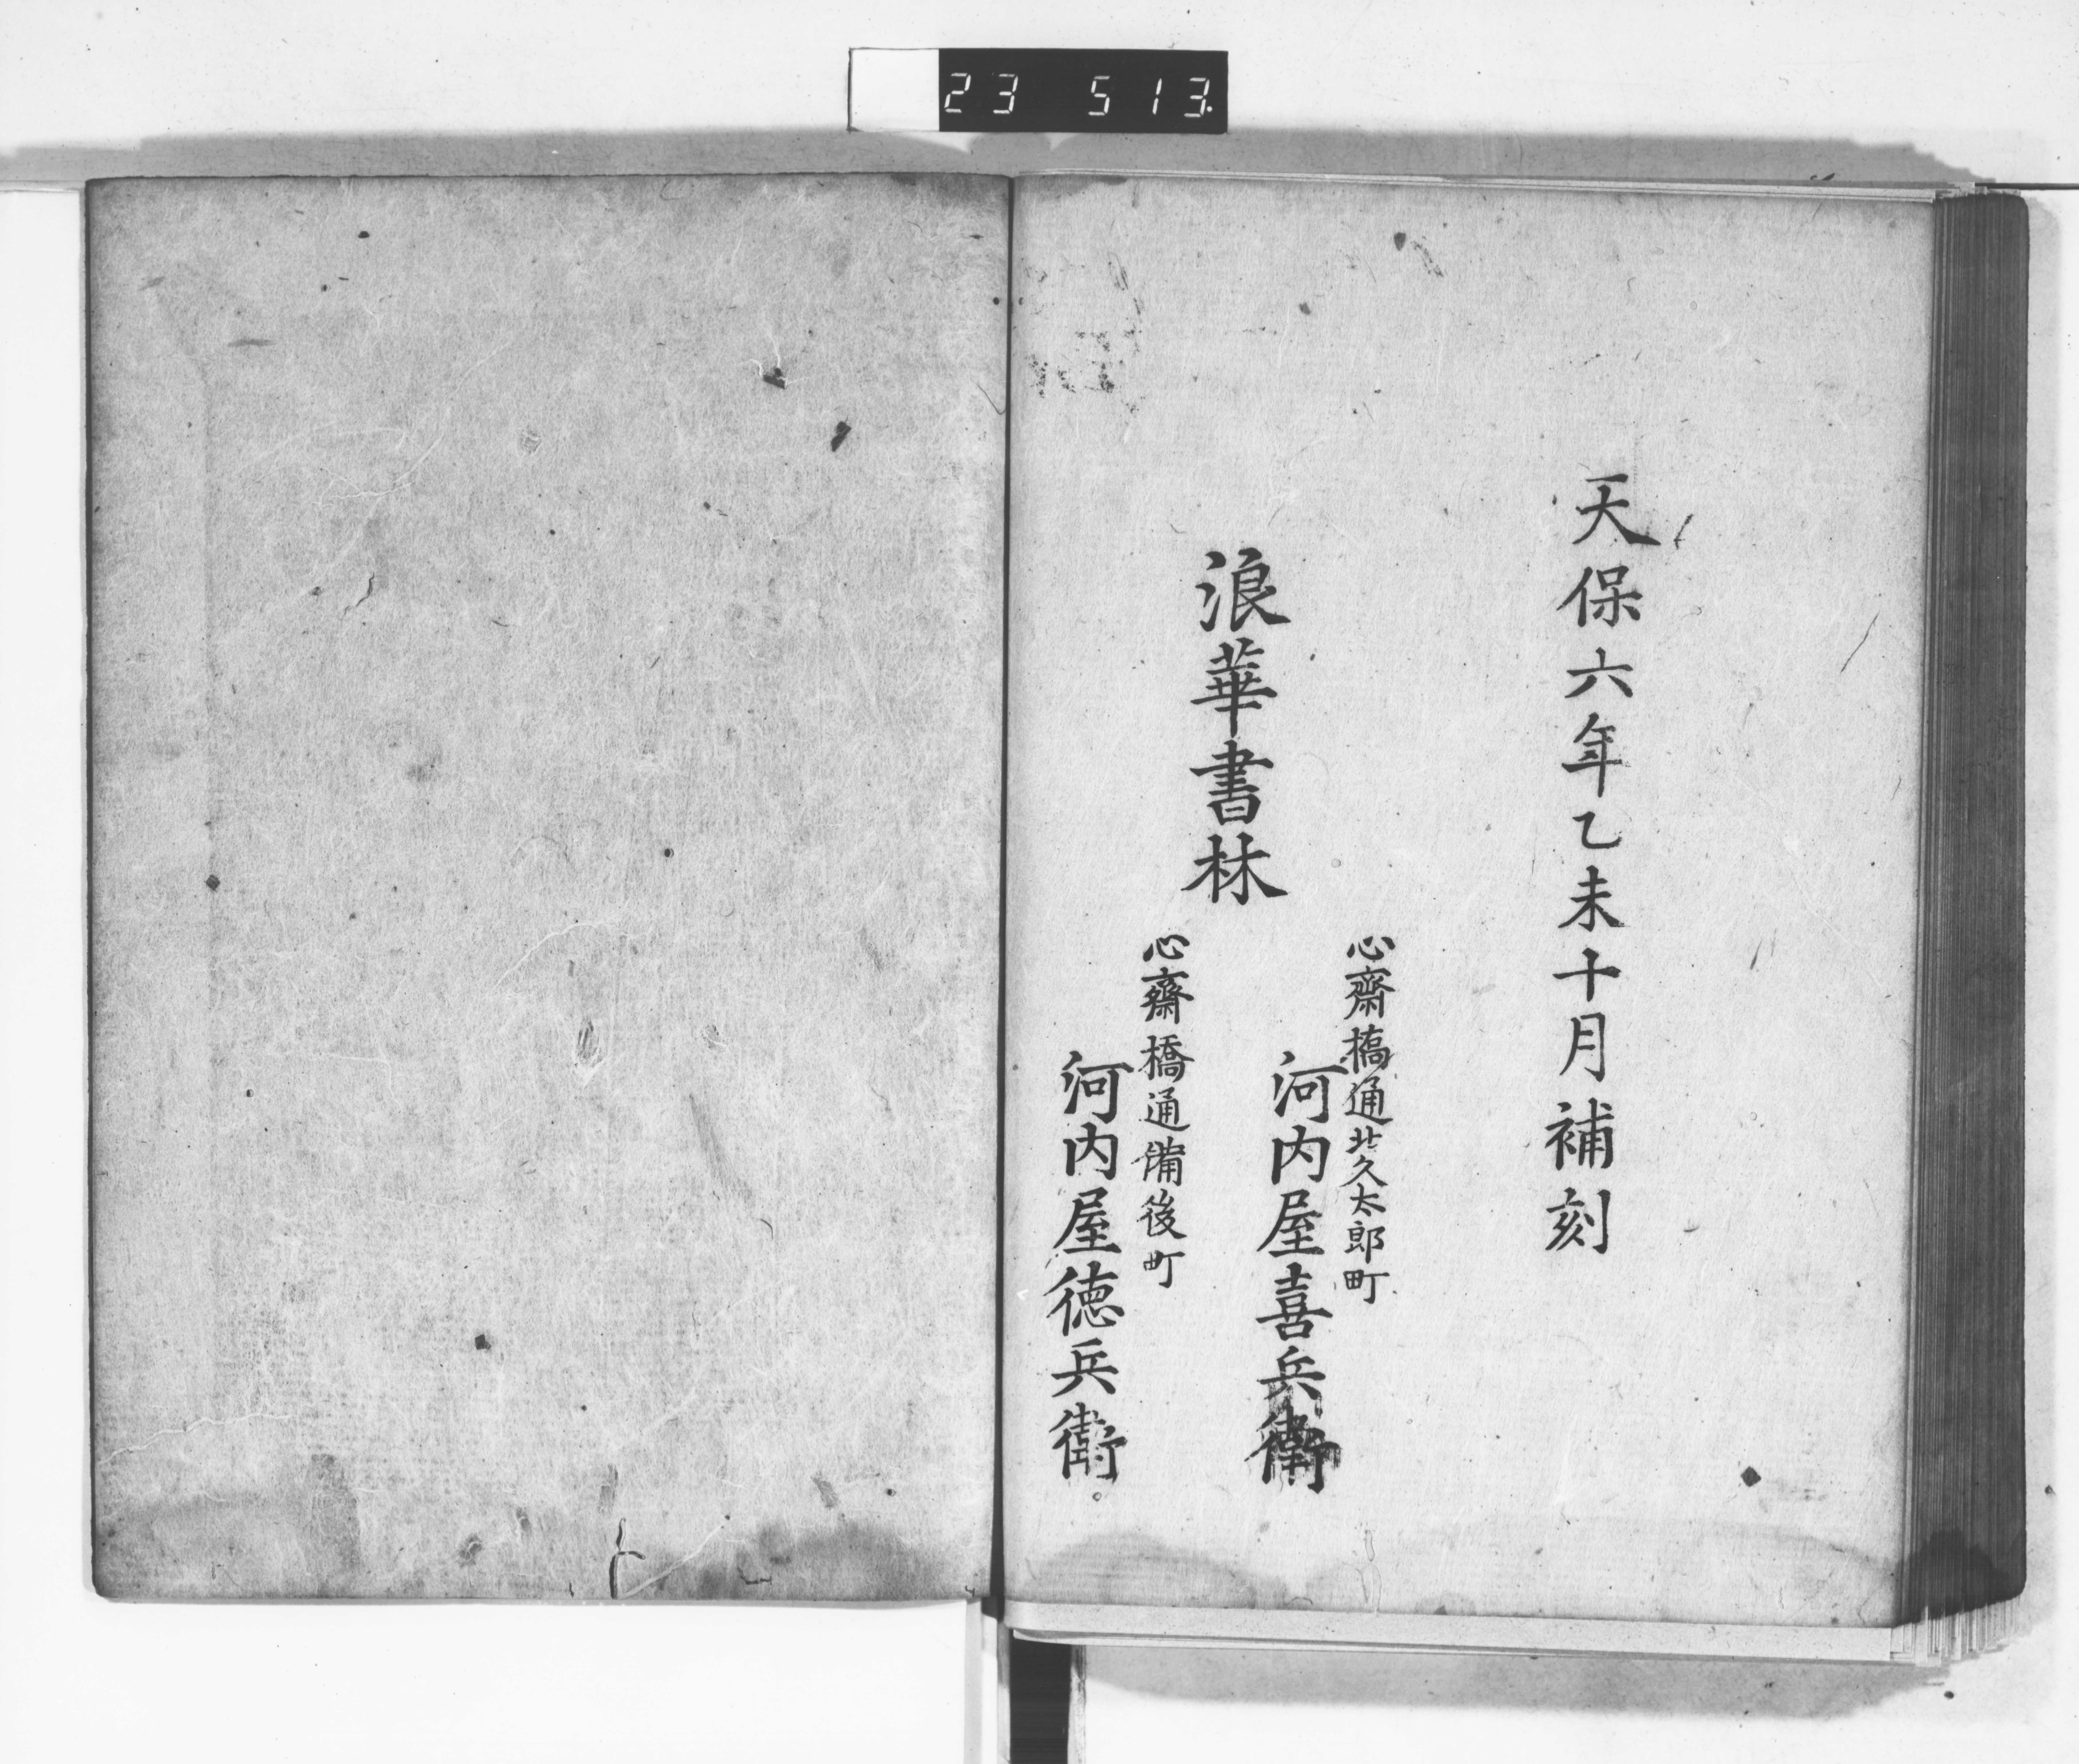 23 513.
天保六年乙未十月補刻
浪華書林
心齋橋通北久太郎町
河内屋喜兵衛
心齋橋通備後町
河内屋徳兵衛